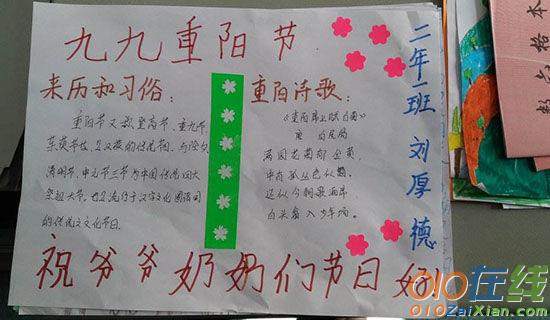 九九重阳节
来历和习俗：
重阳节又叫登高节、重九节、
茱萸节，也是汉族的传统节日，与除夕、
清明节、中元节三节为中国传统四大
祭祖大节，也是流行于汉字文化圈诸国
的传统文化节日。
重阳诗歌：
满园花菊郁金黄，
中有孤丛色似霜。
还似今朝歌酒席
白头翁入少年场。
二年一班 刘厚德
祝爷爷奶奶们节日好
数学格本
010在线
010ZaiXian.com